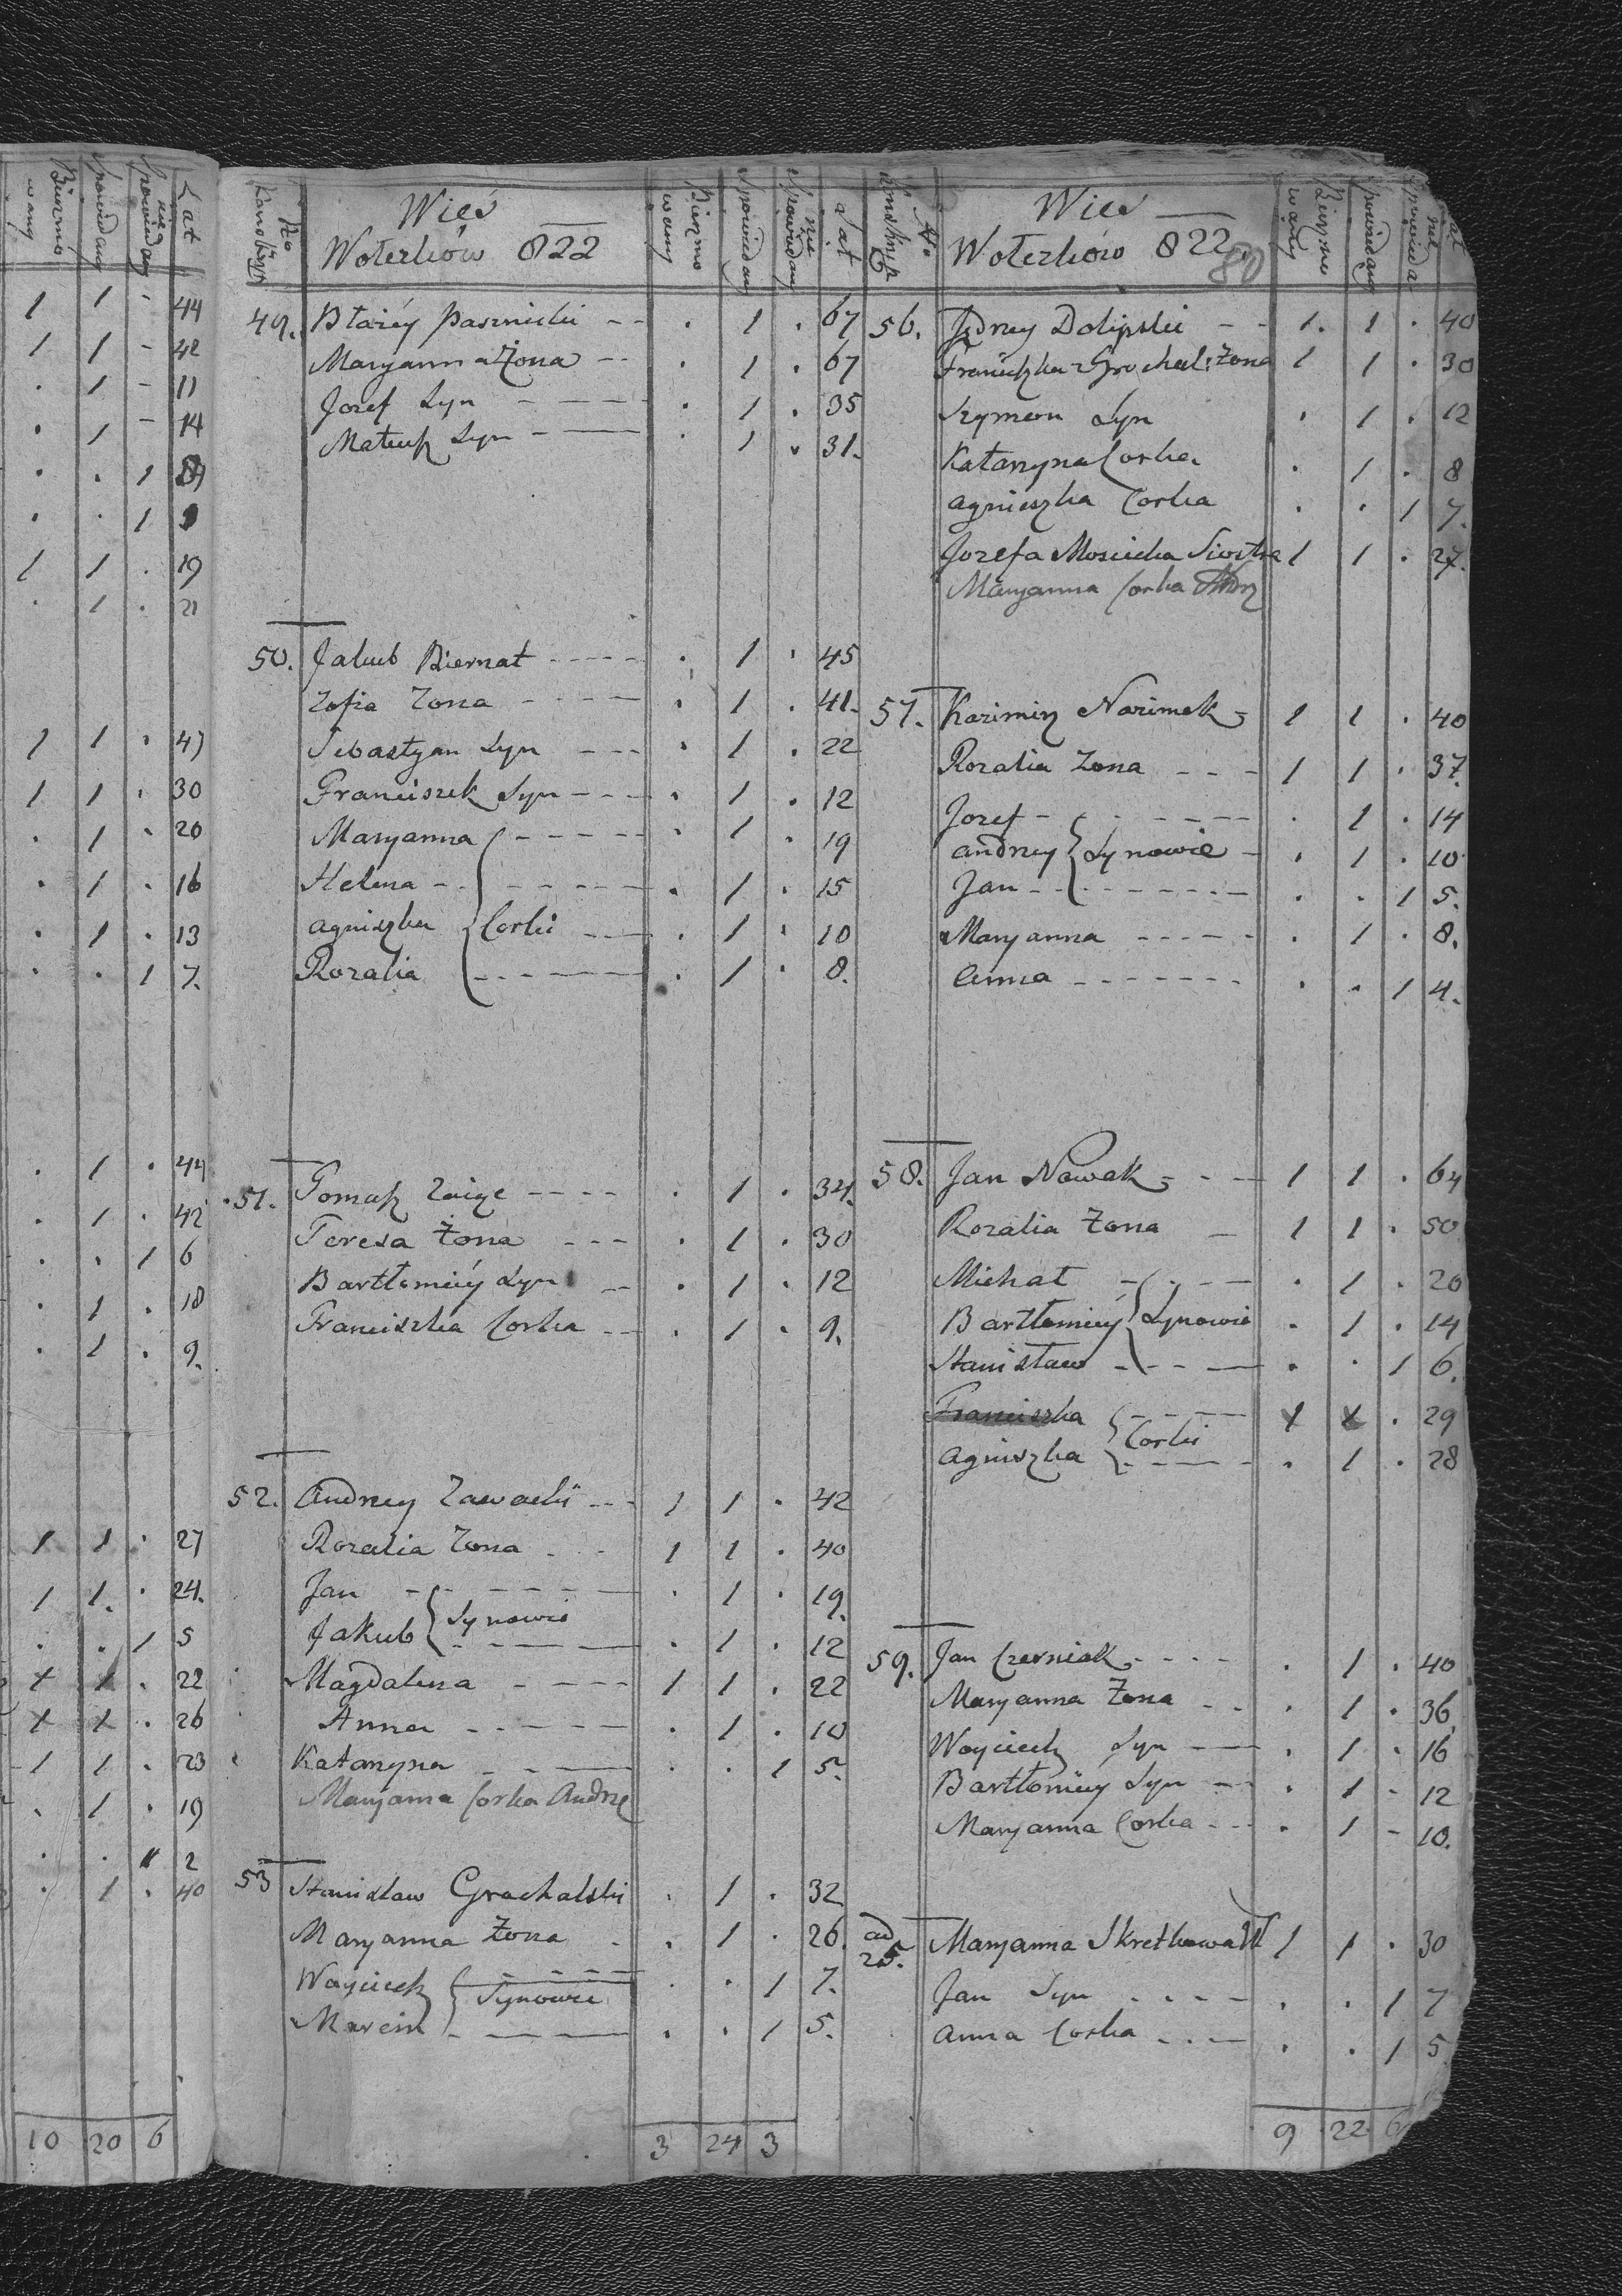 Lat
nie
Spowiedany
Spowiedany
Bierzmo
wany
1 1 - 44
1 1 - 42
. 1 - 11
. 1 - 14
. . 1
. . 1
1 1 . 19
. 1 . 21
1 1 . 47
1 1 . 30
. 1 . 20
. 1 . 16
. 1 . 13
. . 1 7.
. 1 . 44
. 1 . 42
. . 1 6
. 1 . 18
. 1 . 9.
1 1 . 27
1 1. . 24.
. . 1 5
x x . 22
x x . 26
1 1 . 23
. 1 . 19
. . 1 2
. 1 . 40
10 20 6
No Konskrypt
Wieś
Woterków 822
Bierzmo
wany
Spowiedany
nie
Spowiedany
Lat
49. Błażéy Pasznicki -- . 1 . 67
Maryanna Żona -- . 1 . 67
Jozef Syn ---- . 1 . 35
Mateusz Syn --- . 1 . 31.
50. Jakub Biernat ---- . 1 . 45
Zofia Zona ---- . 1 . 41.
Sebastyan Syn --- . 1 . 22
Franciszek Syn --- . 1 . 12
Maryanna ----- . 1 . 19
Helena -- ----- . 1 . 15
Agniszka Corki --- . 1 . 10
Rozalia ----- . 1 . 8.
51. Tomasz Zaige ---- . 1 . 34.
Teresa Żona --- . 1 . 30
Bartłomiéy Syn -- . 1 . 12
Franciszka Corka -- . 1 . 9.
52. Andrzey Zawacki --- 1 1 . 42
Rozalia Zona . -- 1 1 . 40
Jan ------ . 1 . 19.
Jakub Synowie ---- . 1 . 12
Magdalena ---- 1 1 . 22
Anna ----- . 1 . 10
Katarzyna ---- . . 1 5.
Maryanna Corka Andrz
53 Stanisław Grochalski . 1 . 32
Maryanna Żona . . 1 . 26.
Woyciech ---- . . 1 7.
Synowie
Marcin ---- . . 1 5.
3 24 3
No
Konskryp
Wies
Woterków 822.
80
Bierzmo
wany
Spowiedany
nie
Spowieda
Lat
56. Jędrzey Dolipski -- 1. 1 . 40
Franciszka Grochal: Żona 1 1 . 30
Szymon Syn . 1 . 12
Katarzyna Corka . 1 . 8
Agnieszka Corka . . 1 7.
Jozefa Mosicka Siostra 1 1 . 27.
Maryanna Corka Andrz
57. Kazimirz Nazimek - 1 1 . 40
Rozalia Zona --- 1 1 . 37.
Jozef ------ . 1 . 14
Andrzey Synowie - . 1 . 10
Jan ------- . . 1 5.
Maryanna ----- . 1 . 8.
Anna ------- . . 1 4.
58. Jan Nowak --- 1 1 . 64
Rozalia Żona - 1 1 . 50
Michał ---- . 1 . 20
Bartłomiéy Synowie . 1 . 14
Stanisław ---- . . 1 6.
Franciszka ---- x x . 29
Corki
Agniszka ---- . 1 . 28
59. Jan Czerniak ---- . 1 . 40
Maryanna Żona -- . 1 . 36
Woyciech Syn -- . 1 . 16
Bartłomiéy Syn -- . 1 - 12
Maryanna Corka --- . 1 - 10.
ad
25. Maryanna Skretkowa W 1 1 . 30
Jan Syn ---- . . 1 7
Anna Corka ---- . . 1 5
9 22 6